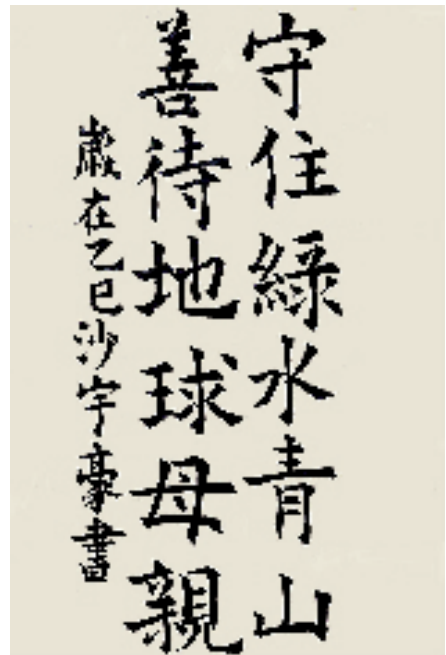 守住綠水青山
善待地球母親
歲在乙巳沙宇豪書